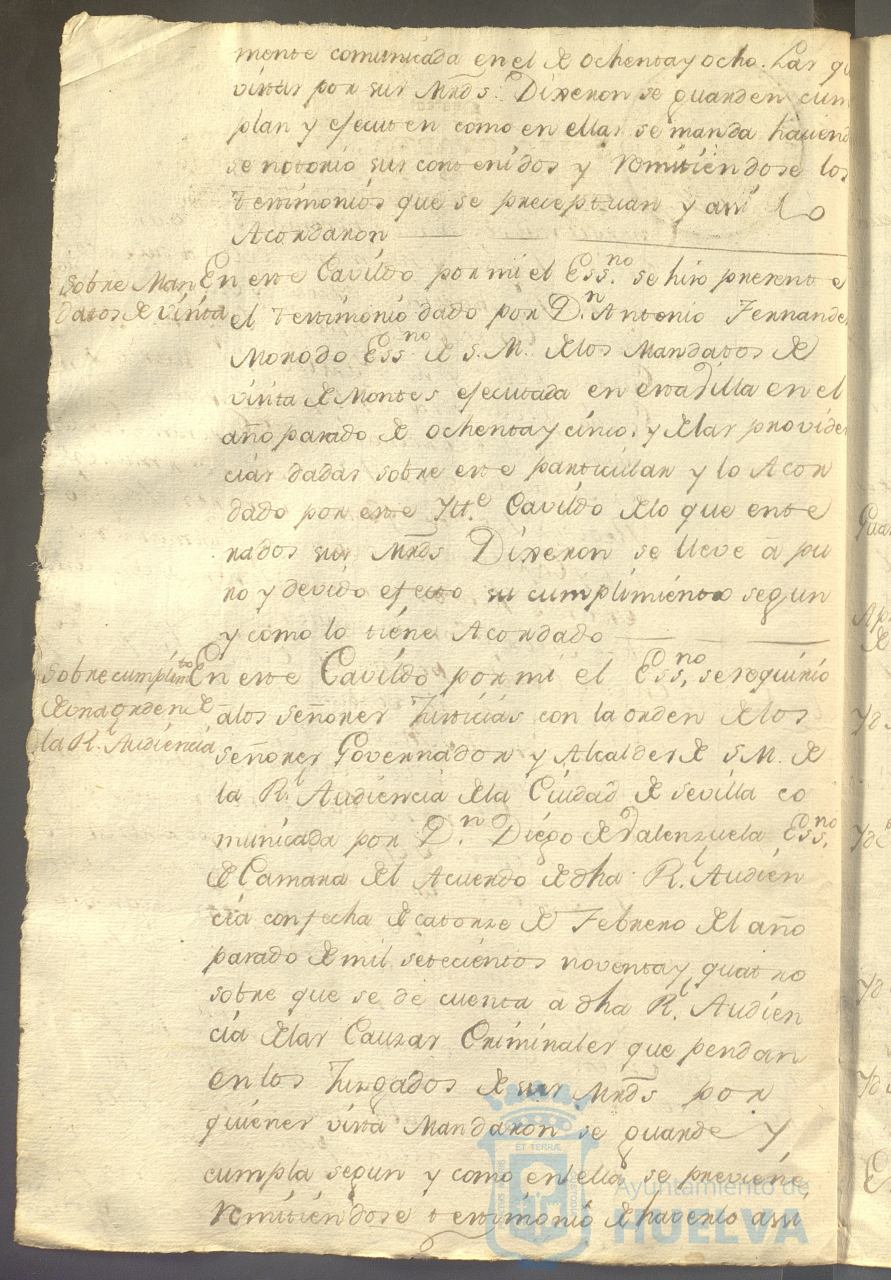 mente comunicada en el de ochenta y ocho. Las qu
vistas por sus Mrds. Dixeron se guarden cum
plan y efecuten como en ellas se manda haciend
se notorio sus contenidos y remitiendose los
testimonios que se preceptuan y assi lo
Acordaron
Sobre Man
datos de visita
En este Cavildo por mi el Essno. se hizo presente
el testimonio dado por Dn. Antonio Fernande
Morodo Essno. de S. M. de los Mandatos de
visita de Montes efecutada en esta Villa en el
año pasado de ochenta y cinco, y de las providen
cias dadas sobre este particular y lo Acor
dado por este Ilte. Cavildo de lo que ente
rados sus Mrds Dixeron se lleve â pu
ro y devido efecto su cumplimiento segun
y como lo tiene Acordado
Sobre cumplimto
de una orden de
la Rl. Audiencia
En este Cavildo por mi el Essno. se requirio
a los señores Justicias con la orden de los
señores Governador y Alcaldes de S. M. de
la Rl. Audiencia de la Ciudad de Sevilla co
municada por Dn. Diego de Valenzuela Essno.
de Camara del Acuerdo de dha Rl. Audien
cia con fecha de catorze de Febrero del año
pasado de mil setecientos noventa y quatro
sobre que se de cuenta a dha Rl. Audien
cia de las Cauzas Criminales que pendan
en los Juzgados de sus Mrds por
quienes vista Mandaron se guarde y
cumpla segun y como en ella se previene,
remitiendose testimonio de haverlo assi
Ayuntamiento de
HUELVA